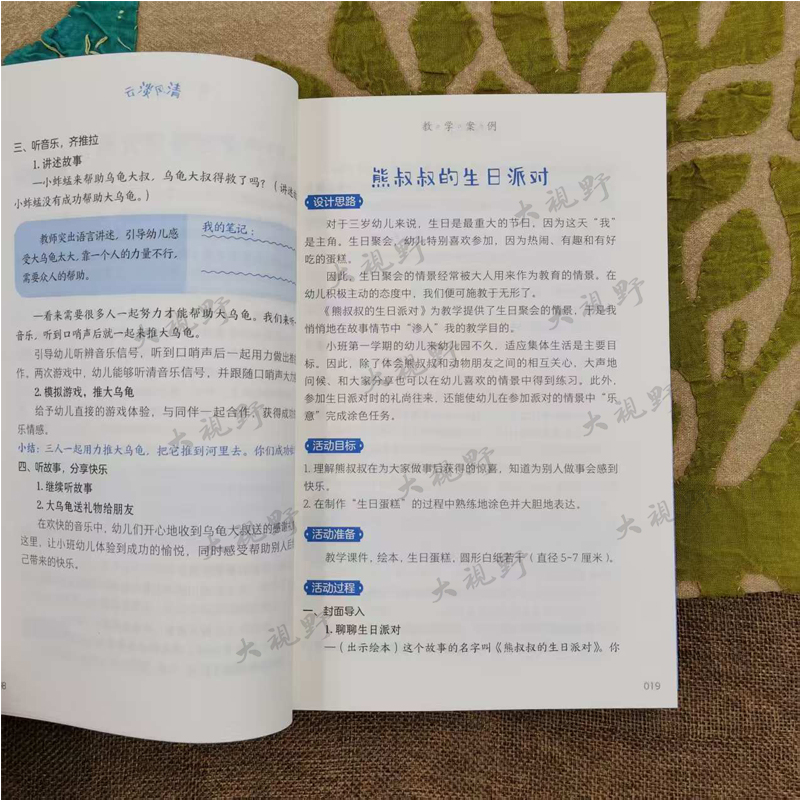 三、听音乐，齐推拉
1.讲述故事
—小蚱蜢来帮助乌龟大叔，乌龟大叔得救了吗？（讲述
小蚱蜢没有成功帮助大乌龟。）
教师突出语言讲述，引导幼儿感
受大乌龟太大，靠一个人的力量不行，
需要众人的帮助。
我的笔记：
—看来需要很多人一起努力才能帮助大乌龟。我们来听
音乐，听到口哨声后就一起来推大乌龟。
引导幼儿听辨音乐信号，听到口哨声后一起用力做出推
作，两次游戏中，幼儿能够听清音乐信号，并跟随口哨声大力
2.模拟游戏，推大乌龟
给予幼儿直接的游戏体验，与同伴一起合作，获得成功
乐情感。
小结：三人一起用力推大乌龟，把它推到河里去。你们成功
四、听故事，分享快乐
1.继续听故事
2.大乌龟送礼物给朋友
在欢快的音乐中，幼儿们开心地收到乌龟大叔送的感谢
这里，让小班幼儿体验到成功的愉悦，同时感受帮助别人
己带来的快乐。
教学案例
熊叔叔的生日派对
设计思路
对于三岁幼儿来说，生日是最重大的节日，因为这天“我”
是主角。生日聚会，幼儿特别喜欢参加，因为热闹、有趣和有好
吃的蛋糕。
因此，生日聚会的情景经常被大人用来作为教育的情景。在
幼儿积极主动的态度中，我们便可施教于无形了。
《熊叔叔的生日派对》为教学提供了生日聚会的情景，于是我
悄悄地在故事情节中“渗入”我的教学目的。
小班第一学期的幼儿来幼儿园不久，适应集体生活是主要目
标。因此，除了体会熊叔叔和动物朋友之间的相互关心，大声地
问候、和大家分享也可以在幼儿喜欢的情景中得到练习。此外，
参加生日派对时的礼尚往来，还能使幼儿在参加派对的情景中“乐
意”完成涂色任务。
活动目标
1.理解熊叔叔在为大家做事后获得的惊喜，知道为别人做事会感到
快乐。
2.在制作“生日蛋糕”的过程中熟练地涂色并大胆地表达。
活动准备
教学课件，绘本，生日蛋糕，圆形白纸若干（直径5-7厘米）。
活动过程
一、封面导入
1.聊聊生日派对
—（出示绘本）这个故事的名字叫《熊叔叔的生日派对》。你
019
大视野
大视野
大视野
大视野
大视野
大视野
大视野
大视野
大视野
大视野
大视野
大视野